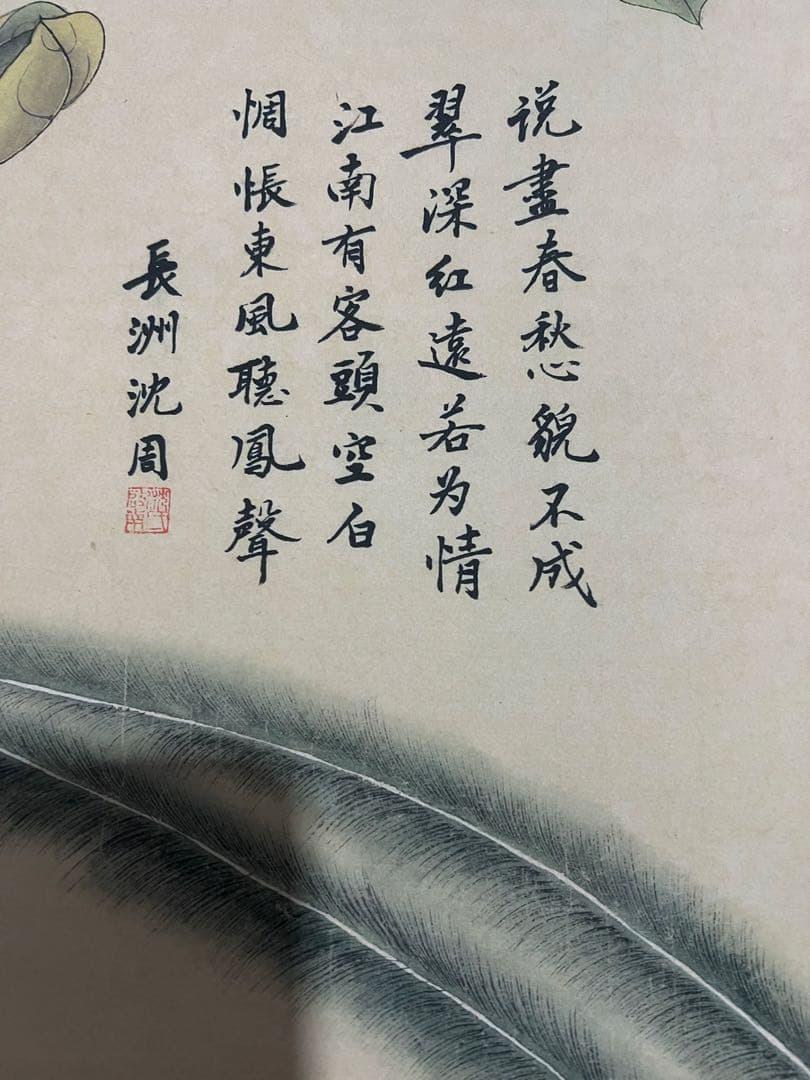 说盡春愁貌不成
翠深红遠若为情
江南有客頭空白
惆悵東風聽鳳聲
長洲沈周